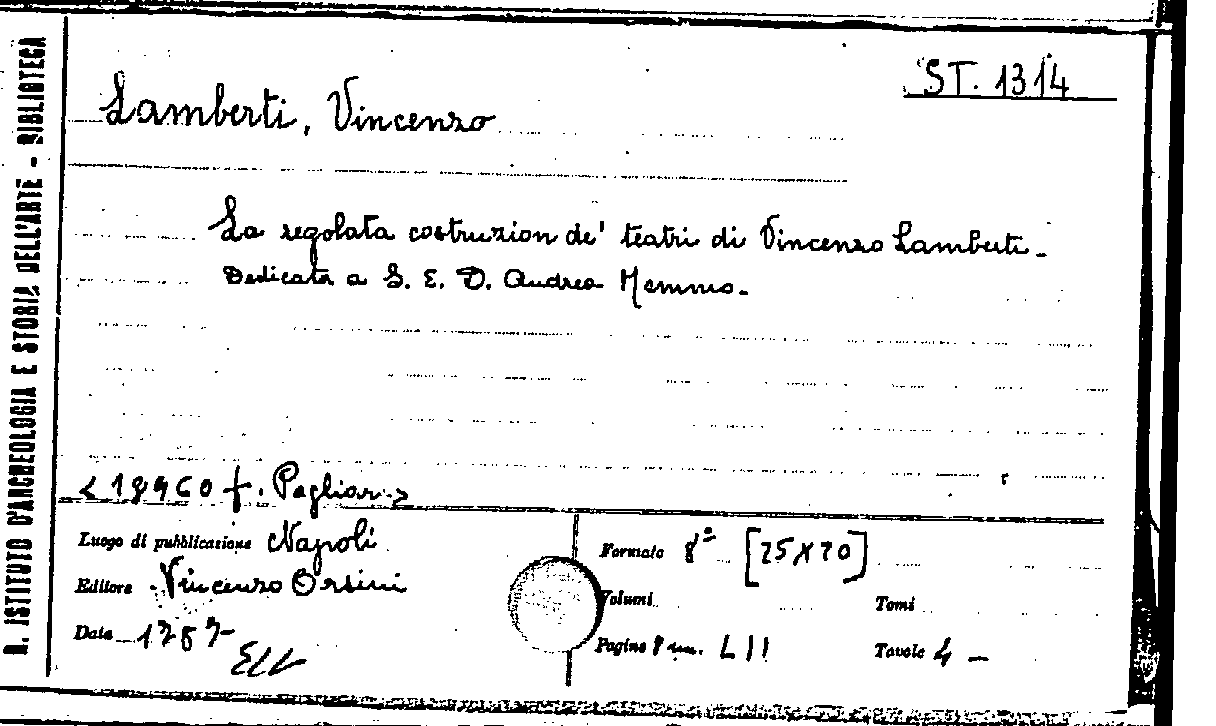 R. ISTITUTO D'ARCHEOLOGIA E STORIA DELL'ARTE - BIBLIOTECA
ST. 1314
Lamberti, Vincenzo
La regolata costruzion de' teatri di Vincenzo Lamberti.
Dedicata a S. E. D. Andrea Memmo.
<18960 f. Pagliari>
Luogo di pubblicazione Napoli
Editore Vincenzo Orsini
Data 1787
Formato 8º [25X20]
Volumi
Tomi
Pagine LII
Tavole 4 -